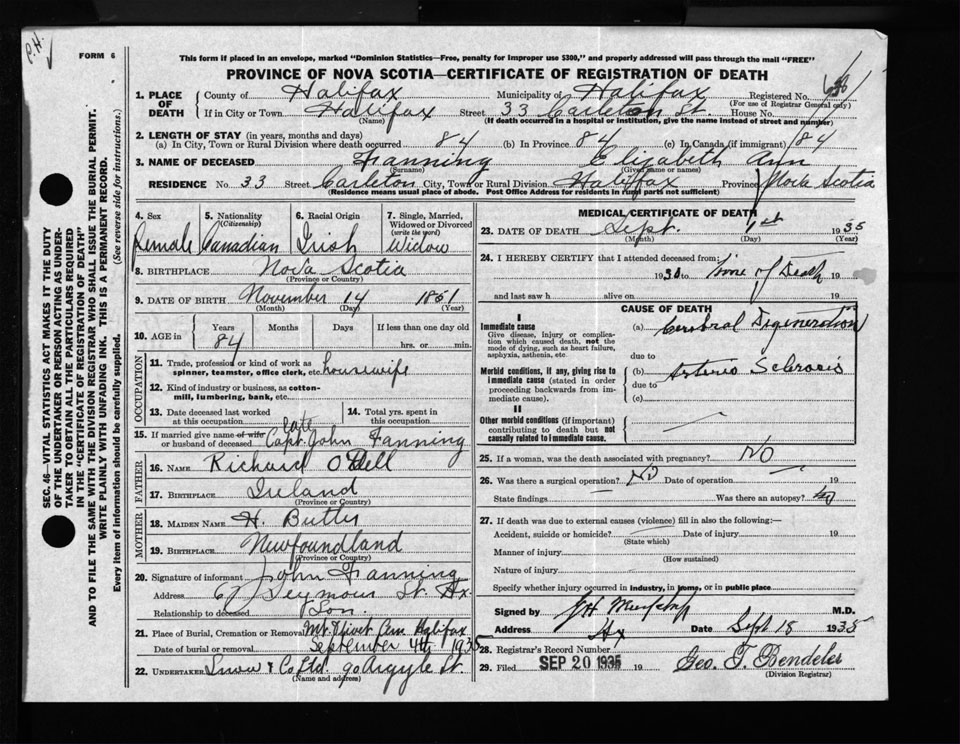 P.H.
FORM 6
This form if placed in an envelope, marked "Dominion Statistics—Free, penalty for improper use $300," and properly addressed will pass through the mail "FREE"
PROVINCE OF NOVA SCOTIA—CERTIFICATE OF REGISTRATION OF DEATH
1. PLACE OF DEATH County of Halifax Municipality of Halifax Registered No.
(For use of Registrar General only)
If in City or Town Halifax Street 33 Carleton St. House No.
(Name) (If death occurred in a hospital or institution, give the name instead of street and number)
2. LENGTH OF STAY (in years, months and days)
(a) In City, Town or Rural Division where death occurred 84 (b) In Province 84 (c) In Canada (if immigrant) 84
3. NAME OF DECEASED Fanning Elizabeth Ann
(Surname) (Given name or names)
RESIDENCE No. 33 Street Carleton City, Town or Rural Division Halifax Province Nova Scotia
(Residence means usual place of abode. Post Office Address for residents in rural parts not sufficient)
4. Sex 5. Nationality 6. Racial Origin 7. Single, Married, Widowed or Divorced
(Citizenship) (write the word)
female Canadian Irish Widow
8. BIRTHPLACE Nova Scotia
(Province or Country)
9. DATE OF BIRTH November 14 1851
(Month) (Day) (Year)
10. AGE in Years Months Days If less than one day old
84 hrs. or min.
OCCUPATION
11. Trade, profession or kind of work as spinner, teamster, office clerk, etc. housewife
12. Kind of industry or business, as cotton-mill, lumbering, bank, etc.
13. Date deceased last worked at this occupation 14. Total yrs. spent in this occupation
15. If married give name of wife or husband of deceased late Capt. John Fanning
FATHER
16. NAME Richard O'Dell
17. BIRTHPLACE Ireland
(Province or Country)
MOTHER
18. MAIDEN NAME H. Butler
19. BIRTHPLACE Newfoundland
(Province or Country)
20. Signature of informant John Fanning
Address 67 Seymour St. Hx
Relationship to deceased Son.
21. Place of Burial, Cremation or Removal Mt. Olivet Cem. Halifax
Date of burial or removal September 4th 1935
22. UNDERTAKER Snow & Co Ltd. 90 Argyle St.
(Name and address)
MEDICAL CERTIFICATE OF DEATH
23. DATE OF DEATH Sept. 1st 1935
(Month) (Day) (Year)
24. I HEREBY CERTIFY that I attended deceased from:
1930 to Time of Death 19
and last saw h alive on 19
CAUSE OF DEATH
I
Immediate cause
Give disease, injury or complication which caused death, not the mode of dying, such as heart failure, asphyxia, asthenia, etc.
(a) Cerebral Degeneration
due to
Morbid conditions, if any, giving rise to immediate cause (stated in order proceeding backwards from immediate cause).
(b) Arterio Sclerosis
due to
(c)
II
Other morbid conditions (if important) contributing to death but not causally related to immediate cause.
25. If a woman, was the death associated with pregnancy? NO
26. Was there a surgical operation? NO Date of operation 19
State findings Was there an autopsy? no
27. If death was due to external causes (violence) fill in also the following:—
Accident, suicide or homicide? Date of injury 19
(State which)
Manner of injury
(How sustained)
Nature of injury
Specify whether injury occurred in industry, in home, or in public place
Signed by M.D.
Address Hx Date Sept 18 1935
28. Registrar's Record Number
29. Filed SEP 20 1935 19 Geo. T. Bendeler
(Division Registrar)
SEC. 46—VITAL STATISTICS ACT MAKES IT THE DUTY OF THE UNDERTAKER OR PERSON ACTING AS UNDERTAKER TO OBTAIN ALL THE PARTICULARS REQUIRED IN THE "CERTIFICATE OF REGISTRATION OF DEATH"
AND TO FILE THE SAME WITH THE DIVISION REGISTRAR WHO SHALL ISSUE THE BURIAL PERMIT.
WRITE PLAINLY WITH UNFADING INK. THIS IS A PERMANENT RECORD.
Every item of information should be carefully supplied. (See reverse side for instructions.)